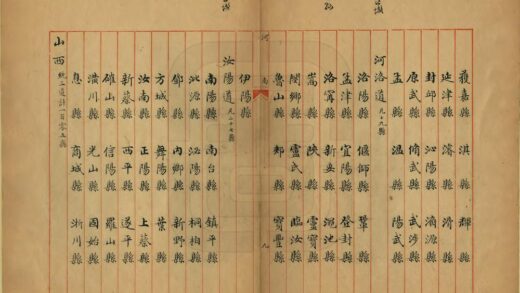 獲嘉縣 淇縣 輝縣
延津縣 濬縣 滑縣
封邱縣 沁陽縣 濟源縣
原武縣 修武縣 武陟縣
孟縣 溫縣 陽武縣
河洛道 凡十九縣
洛陽縣 偃師縣 鞏縣
孟津縣 宜陽縣 登封縣
洛寧縣 新安縣 澠池縣
嵩縣 陝縣 靈寶縣
閿鄉縣 盧氏縣 臨汝縣
魯山縣 郟縣 寶豐縣
河南 九
伊陽縣
汝陽道 凡二十七縣
南陽縣 南台縣 鎮平縣
沘源縣 泌陽縣 桐柏縣
鄧縣 內鄉縣 新野縣
方城縣 舞陽縣 葉縣
汝南縣 正陽縣 上蔡縣
新蔡縣 西平縣 遂平縣
確山縣 信陽縣 羅山縣
潢川縣 光山縣 固始縣
息縣 商城縣 淅川縣
山西 統三道計一百零五縣